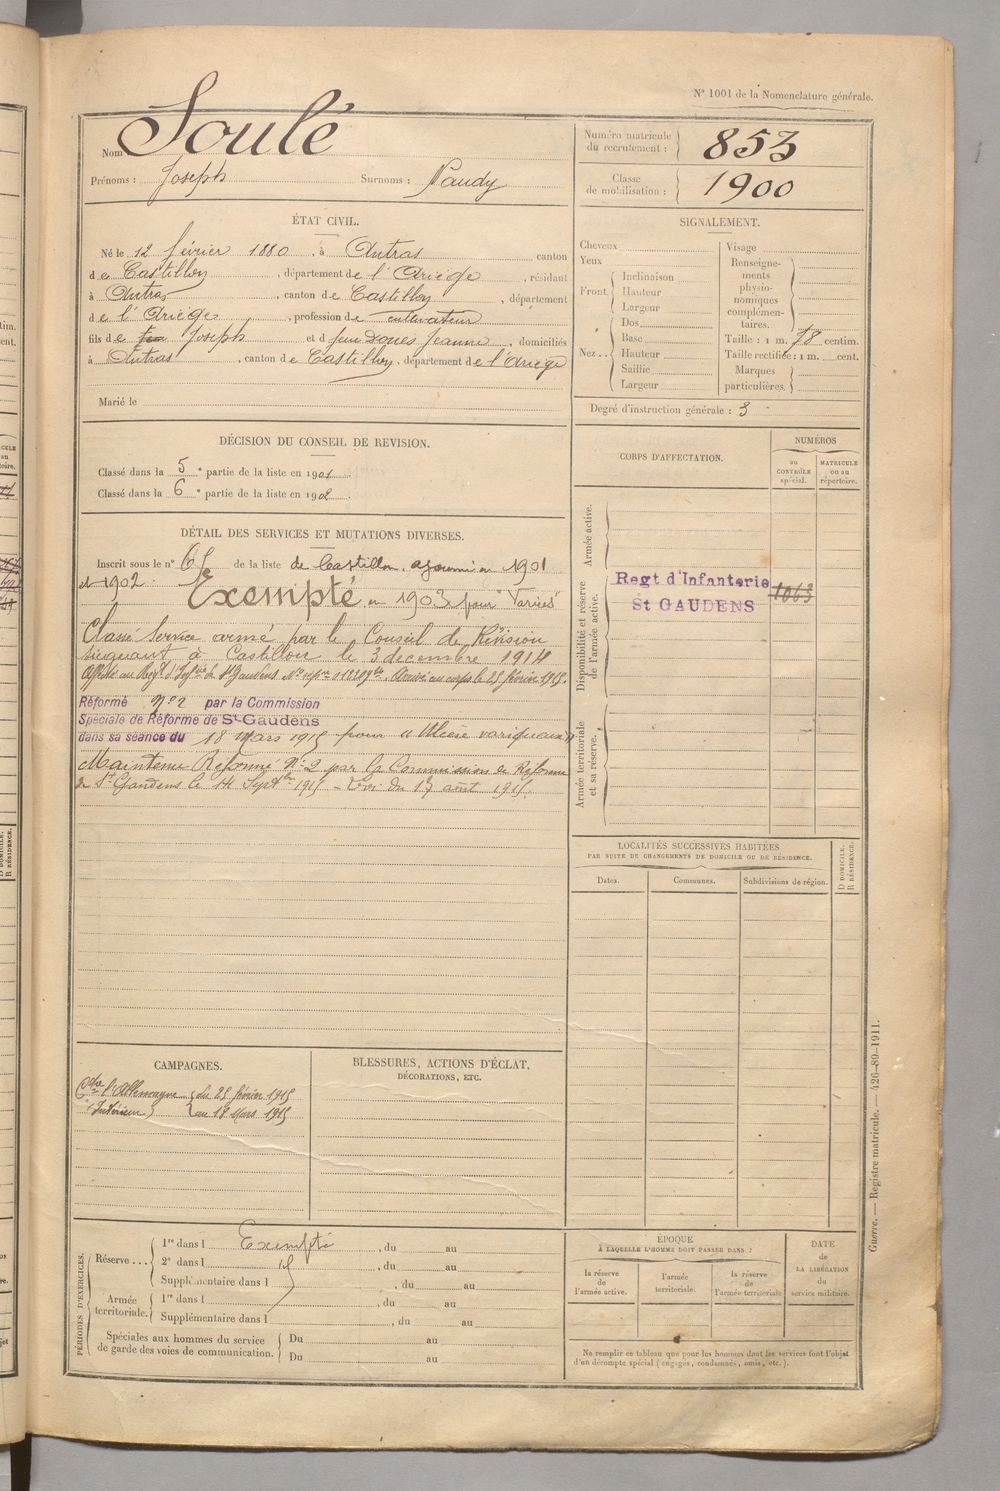 N° 1001 de la Nomenclature générale.
Nom Soulé
Prénoms : Joseph Surnoms : Naudy
Numéro matricule du recrutement : 853
Classe de mobilisation : 1900
ÉTAT CIVIL.
Né le 12 février 1880, à Antras, canton
de Castillon, département de l'Ariège, résidant
à Antras, canton de Castillon, département
de l'Ariège, profession de cultivateur
fils de feu Joseph et de feu Doues Jeanne, domiciliés
à Antras, canton de Castillon, département de l'Ariège
Marié le
SIGNALEMENT.
Cheveux
Yeux
Front. Inclinaison
Hauteur
Largeur
Nez... Dos
Base
Hauteur
Saillie
Largeur
Visage
Renseignements physionomiques complémentaires.
Taille : 1 m. 78 centim.
Taille rectifiée : 1 m. cent.
Marques particulières.
Degré d'instruction générale : 3
DÉCISION DU CONSEIL DE REVISION.
Classé dans la 5e partie de la liste en 1901
Classé dans la 6e partie de la liste en 1902.
CORPS D'AFFECTATION.
NUMÉROS
au CONTRÔLE spécial.
MATRICULE ou au répertoire.
Armée active.
Disponibilité et réserve de l'armée active.
Regt d'Infanterie 1063
St GAUDENS
Armée territoriale et sa réserve.
DÉTAIL DES SERVICES ET MUTATIONS DIVERSES.
Inscrit sous le n° 65 de la liste de Castillon, ajourné en 1901
et 1902. Exempté en 1903 pour "Varices"
Classé Service armé par le Conseil de Révision
siégeant à Castillon le 3 décembre 1914
Affecté au Regt d'Infrie de St Gaudens Arrivé au corps le 25 février 1915.
Réformé N° 2 par la Commission
Spéciale de Réforme de St-Gaudens
dans sa séance du 18 Mars 1915 pour "Ulcère variqueux"
Maintenu Réformé N° 2 par la Commission de Réforme
de St Gaudens le 14 Septbre 1915 - Loi du 17 août 1915.
LOCALITÉS SUCCESSIVES HABITÉES
PAR SUITE DE CHANGEMENTS DE DOMICILE OU DE RÉSIDENCE.
Dates.
Communes.
Subdivisions de région.
D DOMICILE.
R RÉSIDENCE.
CAMPAGNES.
Ctre l'Allemagne du 25 février 1915
(Intérieur) au 18 Mars 1915
BLESSURES, ACTIONS D'ÉCLAT,
DÉCORATIONS, ETC.
PÉRIODES D'EXERCICES.
Réserve... 1re dans l Exempté, du au
2e dans l, du au
Supplémentaire dans l, du au
Armée territoriale. 1re dans l, du au
Supplémentaire dans l, du au
Spéciales aux hommes du service de garde des voies de communication. Du au
Du au
ÉPOQUE
À LAQUELLE L'HOMME DOIT PASSER DANS :
la réserve de l'armée active.
l'armée territoriale.
la réserve de l'armée territoriale
DATE de LA LIBÉRATION du service militaire.
Ne remplir ce tableau que pour les hommes dont les services font l'objet
d'un décompte spécial (engagés, condamnés, omis, etc.).
Guerre. — Registre matricule. — 426-89-1911.